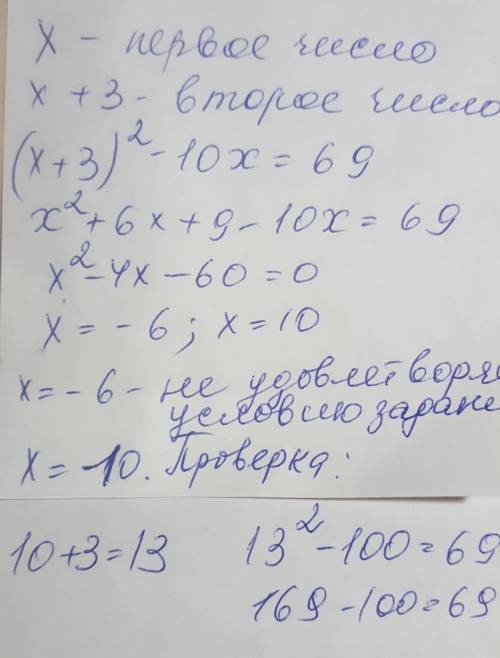 x - первое число
x + 3 - второе число
(x+3)² - 10x = 69
x² + 6x + 9 - 10x = 69
x² - 4x - 60 = 0
x = - 6 ; x = 10
x = - 6 - не удовлетворя
условию задан
x = -10. Проверка:
10+3=13
13² - 100 = 69
169 - 100 = 69